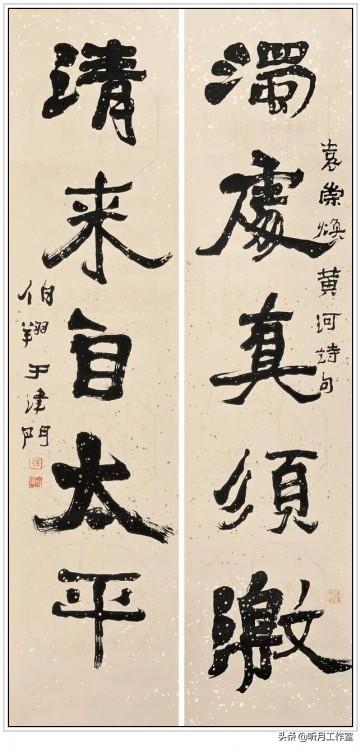 濁處真須激
袁崇煥黄河詩句
清来自太平
伯翔于津門
头条 @听月工作室